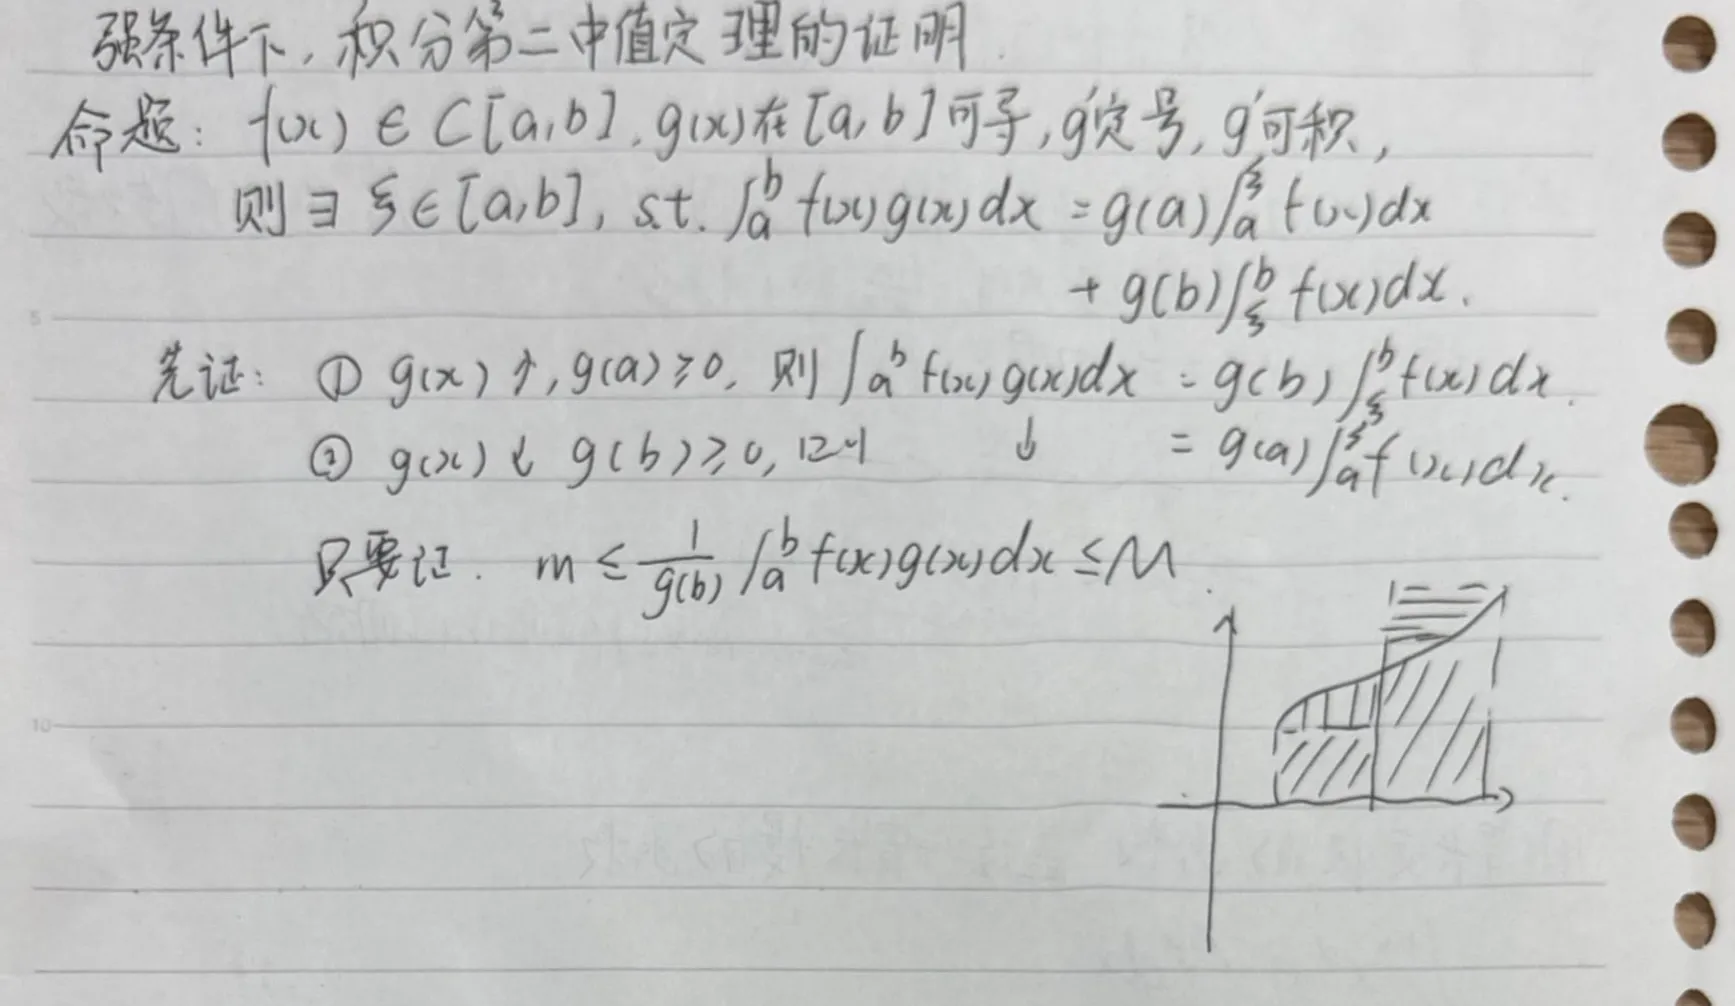 强条件下，积分第二中值定理的证明.
命题：f(x) ∈ C[a,b]，g(x)在[a,b]可导，g'定号，g'可积，
则∃ ξ∈[a,b]，s.t. ∫_a^b f(x)g(x)dx = g(a)∫_a^ξ f(x)dx
+ g(b)∫_ξ^b f(x)dx.
先证：① g(x)↑，g(a)≥0，则∫_a^b f(x)g(x)dx = g(b)∫_ξ^b f(x)dx.
② g(x)↓ g(b)≥0，则 ↓ = g(a)∫_a^ξ f(x)dx.
只要证. m ≤ 1/g(b) ∫_a^b f(x)g(x)dx ≤ M
5
10